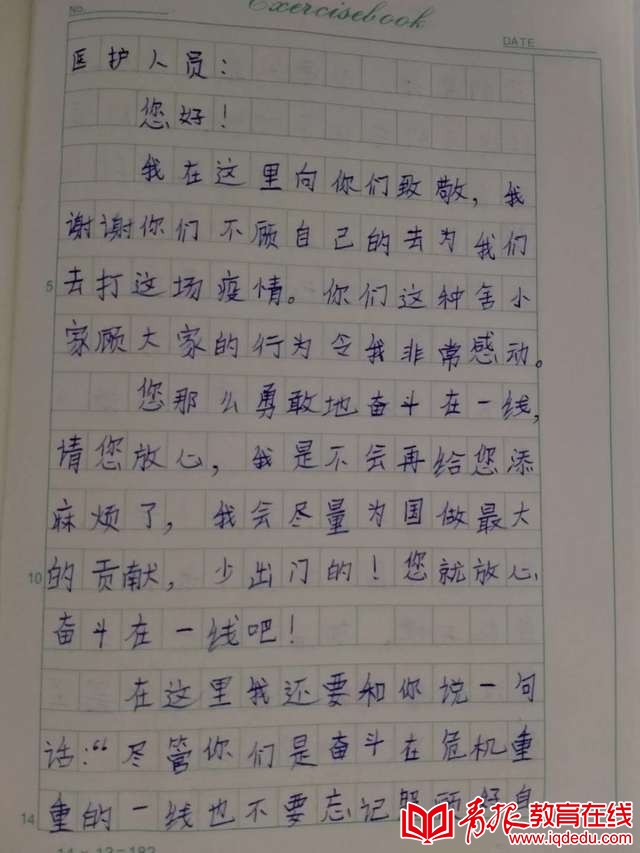 Exercisebook
NO.
DATE
医护人员：
您好！
我在这里向你们致敬，我
谢谢你们不顾自己的去为我们
5
去打这场疫情。你们这种舍小
家顾大家的行为令我非常感动。
您那么勇敢地奋斗在一线，
请您放心，我是不会再给您添
麻烦了，我会尽量为国做最大
10
的贡献，少出门的！您就放心
奋斗在一线吧！
在这里我还要和你说一句
话：“尽管你们是奋斗在危机重
14
重的一线也不要忘记照顾好自
14×13=182
青报教育在线
www.iqdedu.com